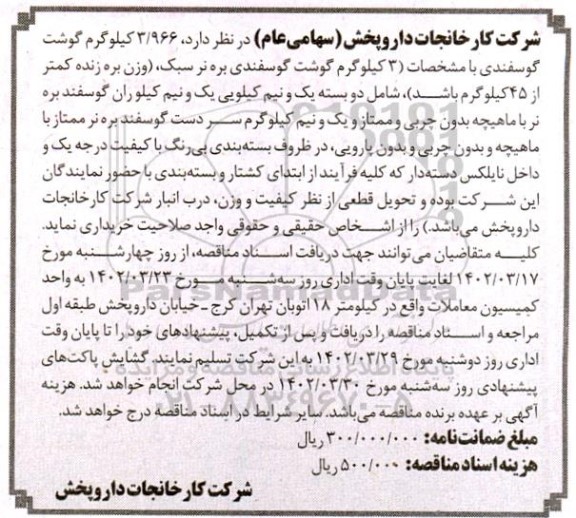 شرکت کارخانجات داروپخش (سهامی عام) در نظر دارد، ۳/۹۶۶ کیلوگرم گوشت
گوسفندی با مشخصات (۳ کیلوگرم گوشت گوسفندی بره نر سبک، (وزن بره زنده کمتر
از ۴۵کیلوگرم باشد)، شامل دو بسته یک و نیم کیلویی یک و نیم کیلو ران گوسفند بره
نر با ماهیچه بدون چربی و ممتاز و یک و نیم کیلوگرم سر دست گوسفند بره نر ممتاز با
ماهیچه و بدون چربی و بدون پارویی، در ظروف بسته‌بندی بی‌رنگ با کیفیت درجه یک و
داخل نایلکس دسته‌دار که کلیه فرآیند از ابتدای کشتار و بسته‌بندی با حضور نمایندگان
این شرکت بوده و تحویل قطعی از نظر کیفیت و وزن، درب انبار شرکت کارخانجات
داروپخش می‌باشد.) را از اشخاص حقیقی و حقوقی واجد صلاحیت خریداری نماید.
کلیه متقاضیان می‌توانند جهت دریافت اسناد مناقصه، از روز چهارشنبه مورخ
۱۴۰۲/۰۳/۱۷ لغایت پایان وقت اداری روز سه‌شنبه مورخ ۱۴۰۲/۰۳/۲۳ به واحد
کمیسیون معاملات واقع در کیلومتر ۱۸ اتوبان تهران کرج ـ خیابان داروپخش طبقه اول
مراجعه و اسناد مناقصه را دریافت و پس از تکمیل، پیشنهادهای خود را تا پایان وقت
اداری روز دوشنبه مورخ ۱۴۰۲/۰۳/۲۹ به این شرکت تسلیم نمایند. گشایش پاکت‌های
پیشنهادی روز سه‌شنبه مورخ ۱۴۰۲/۰۳/۳۰ در محل شرکت انجام خواهد شد. هزینه
آگهی بر عهده برنده مناقصه می‌باشد. سایر شرایط در اسناد مناقصه درج خواهد شد.
مبلغ ضمانت‌نامه: ۳۰۰/۰۰۰/۰۰۰ ریال
هزینه اسناد مناقصه: ۵۰۰/۰۰۰ ریال
شرکت کارخانجات داروپخش